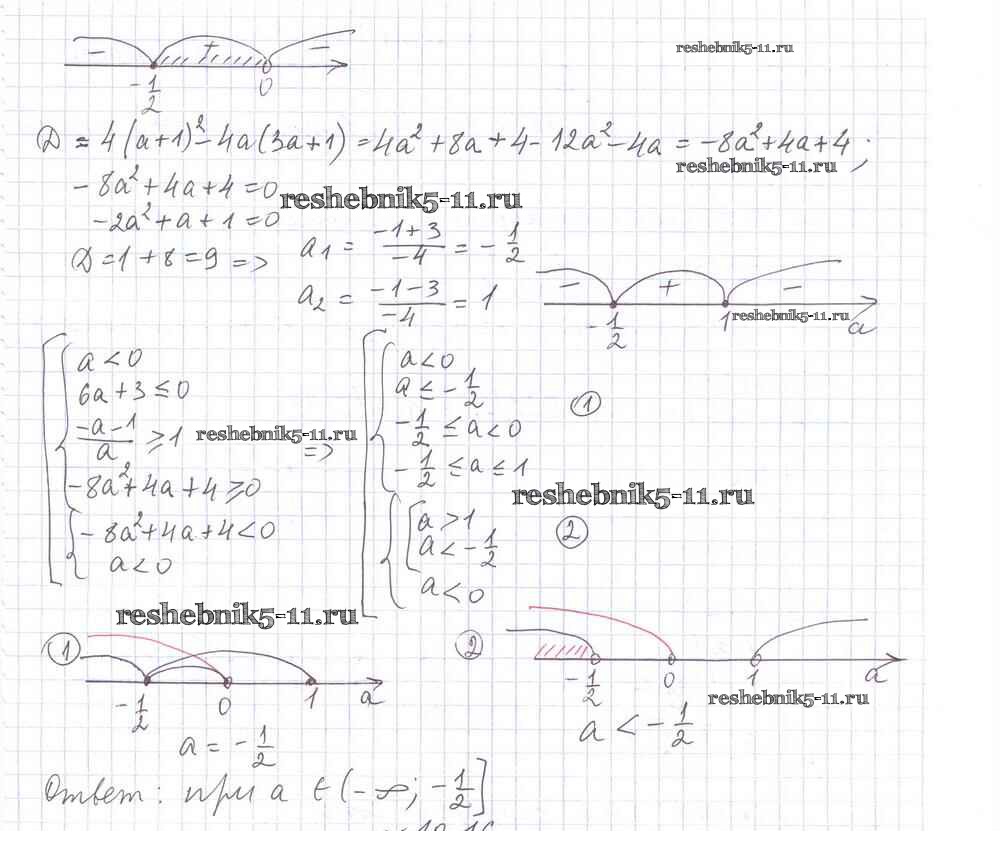 reshebnik5-11.ru
− + −
-1/2 0
D = 4(a+1)² - 4a(3a+1) = 4a² + 8a + 4 - 12a² - 4a = -8a² + 4a + 4 ;
reshebnik5-11.ru
-8a² + 4a + 4 = 0
reshebnik5-11.ru
-2a² + a + 1 = 0
D = 1 + 8 = 9 =>
a₁ = (-1+3)/-4 = -1/2
a₂ = (-1-3)/-4 = 1
− + −
-1/2 1 a
reshebnik5-11.ru
a < 0
6a + 3 ≤ 0
(-a-1)/a ≥ 1
-8a² + 4a + 4 ≥ 0
-8a² + 4a + 4 < 0
a < 0
reshebnik5-11.ru
=>
a < 0
a ≤ -1/2
-1/2 ≤ a < 0
-1/2 ≤ a ≤ 1
①
reshebnik5-11.ru
a > 1
a < -1/2
a < 0
②
reshebnik5-11.ru
①
-1/2 0 1 a
a = -1/2
②
-1/2 0 1 a
reshebnik5-11.ru
a < -1/2
Ответ: при a ∈ (-∞; -1/2]